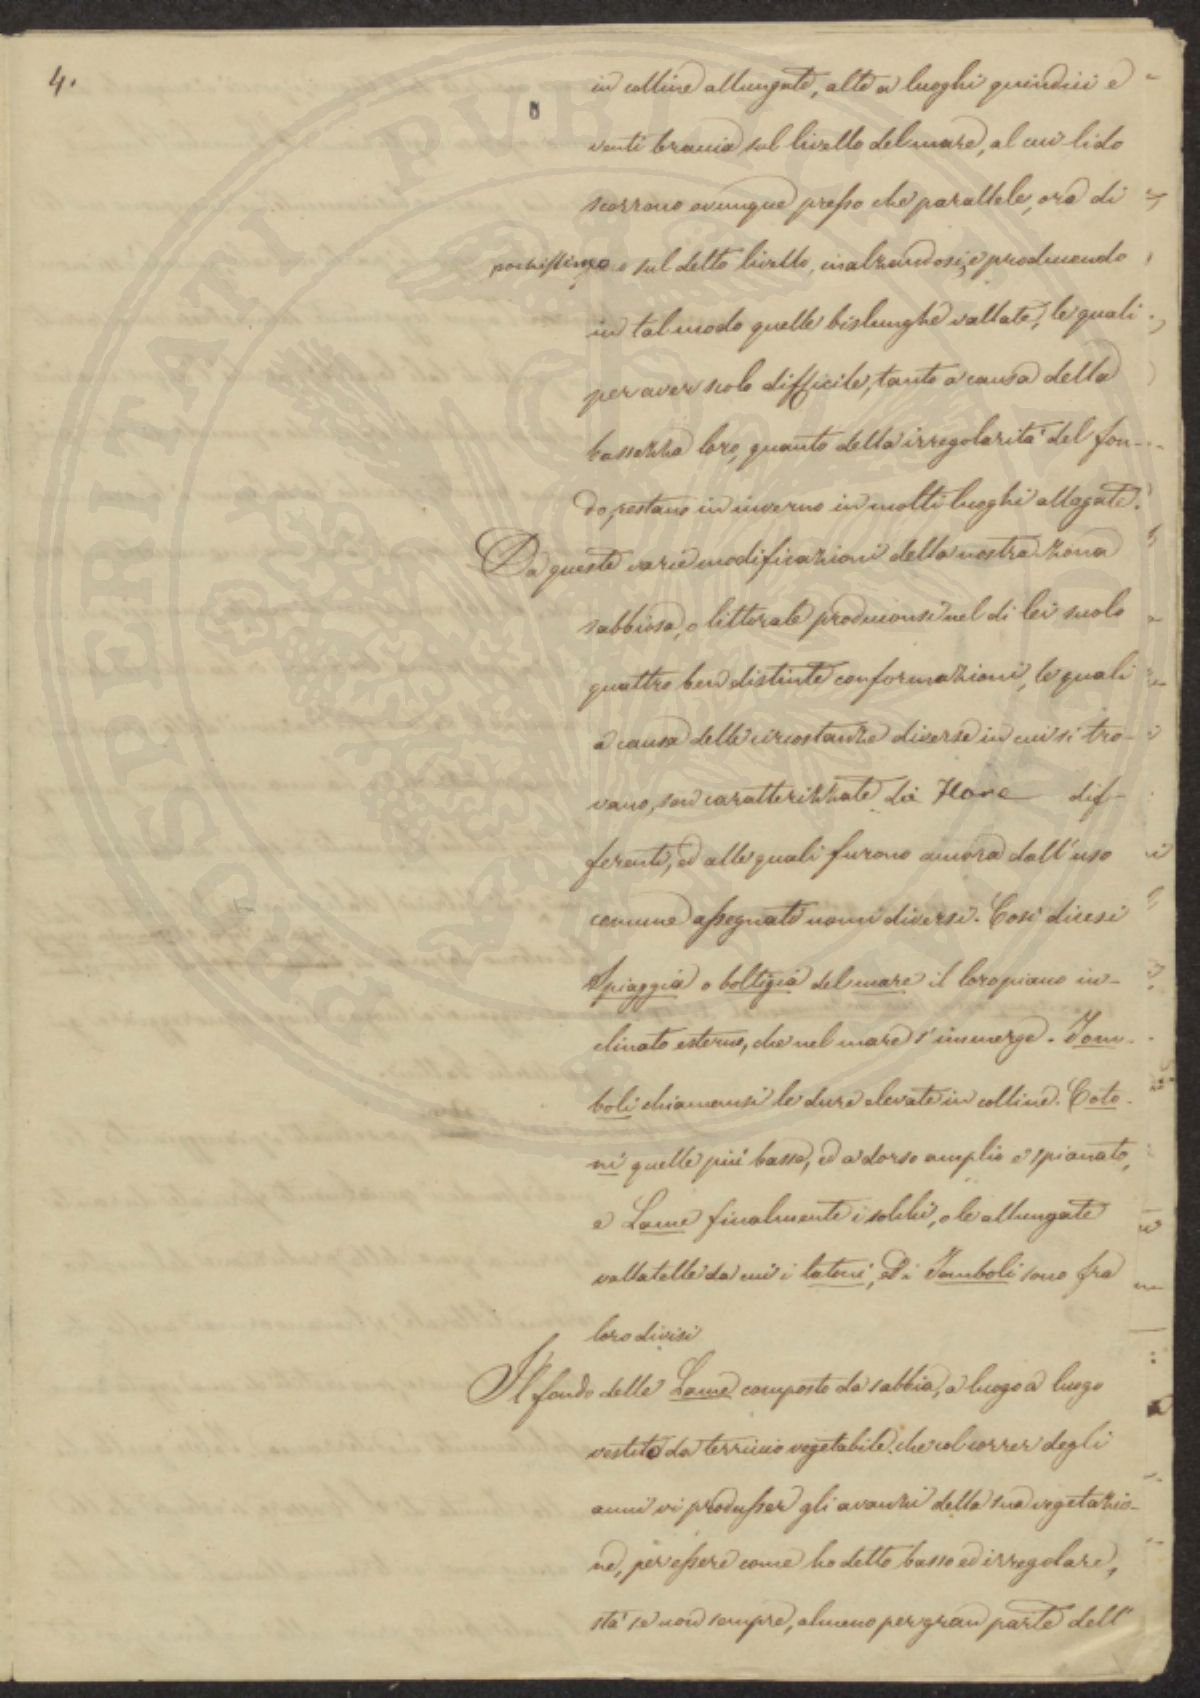 4.
in colline allungate, alte a luoghi quindici e
venti braccia sul livello del mare, al cui lido
scorrono ovunque presso che parallele, ora di
pochissimo sul detto livello inalzandosi, e producendo
in tal modo quelle bislunghe vallate, le quali
per aver scolo difficile, tanto a causa della
bassezza loro, quanto della irregolarità del fon-
do, restano in inverno in molti luoghi allagate.
Da queste varie modificazioni della nostra zona
sabbiosa, o littorale produconsi nel di lei suolo
quattro ben distinte conformazioni, le quali
a causa delle circostanze diverse in cui si tro-
vano, son caratterizzate da Flore dif-
ferenti, ed alle quali furono ancora dall'uso
comune assegnati nomi diversi. Così dicesi
Spiaggia o boltigia del mare il loro piano in-
clinato esterno, che nel mare s'immerge. Tom-
boli chiamansi le dure elevate in colline. Coto-
ni quelle più basse, ed a dorso amplio e spianato,
e Lame finalmente i solchi, o le allungate
vallatelle da cui i Cotoni, ed i Tomboli sono fra
loro divisi
Il fondo delle Lame composto da sabbia, a luogo a luogo
vestito da terriccio vegetabile che col correr degli
anni vi produsser gli avanzi della sua vegetazio-
ne, per essere come ho detto basso ed irregolare,
sta se non sempre, almeno per gran parte dell'